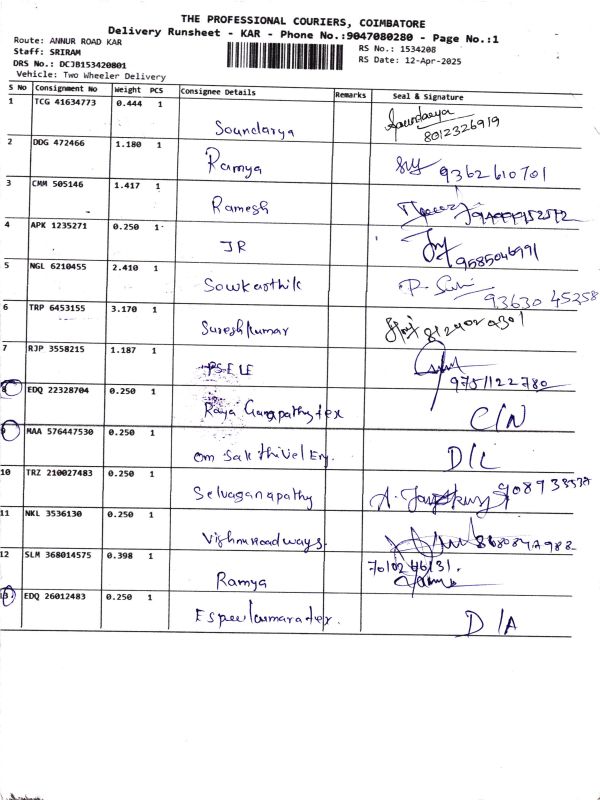 THE PROFESSIONAL COURIERS, COIMBATORE
Delivery Runsheet - KAR - Phone No.:9047080280 - Page No.:1
Route: ANNUR ROAD KAR
RS No.: 1534208
Staff: SRIRAM
DRS No.: DCJB153420801
RS Date: 12-Apr-2025
Vehicle: Two Wheeler Delivery
S No Consignment No Weight PCS Consignee Details Remarks Seal & Signature
1 TCG 41634773 0.444 1 Soundarya Soundarya
8012326919
2 DDG 472466 1.180 1 Ramya 9362610701
3 CMM 505146 1.417 1 Ramesh
4 APK 1235271 0.250 1 JR 9585046991
5 NGL 6210455 2.410 1 Sowkarthik
93630 45258
6 TRP 6453155 3.170 1 Sureshkumar
7 RJP 3558215 1.187 1 PS-ELE
9751122780
8 EDQ 22328704 0.250 1 Raya Ganapathy tex C/N
9 MAA 576447530 0.250 1 om Sakthivel Eng. D/L
10 TRZ 210027483 0.250 1 Selvaganapathy
11 NKL 3536130 0.250 1 Vishnu Roadways.
12 SLM 368014575 0.398 1 Ramya
13 EDQ 26012483 0.250 1 D/A